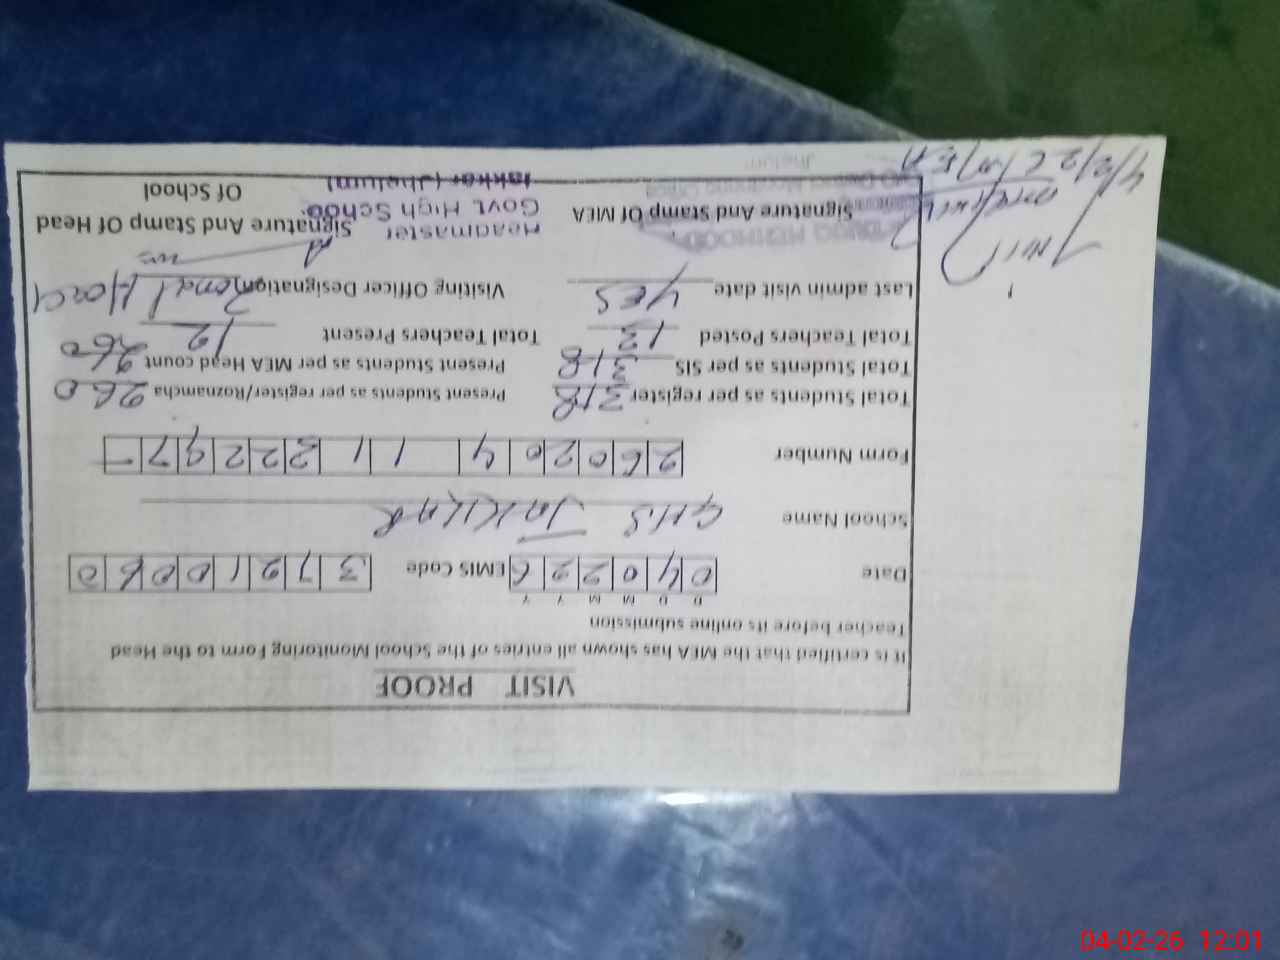 VISIT PROOF
It is certified that the MEA has shown all entries of the School Monitoring Form to the Head
Teacher before its online submission
D D M M Y Y
Date 040226 EMIS Code 37210060
School Name GHS JAKKHAR
Form Number 26020411322297
Total Students as per register 318 Present Students as per register/Roznamcha 260
Total Students as per SIS 318 Present Students as per MEA Head count 260
Total Teachers Posted 13 Total Teachers Present 12
Last admin visit date YES Visiting Officer Designation
Signature And Stamp Of MEA
Signature And Stamp Of Head
Of School
Headmaster
Govt. High School
(Jhelum)
4/2/26 MEA
04-02-26 12:01